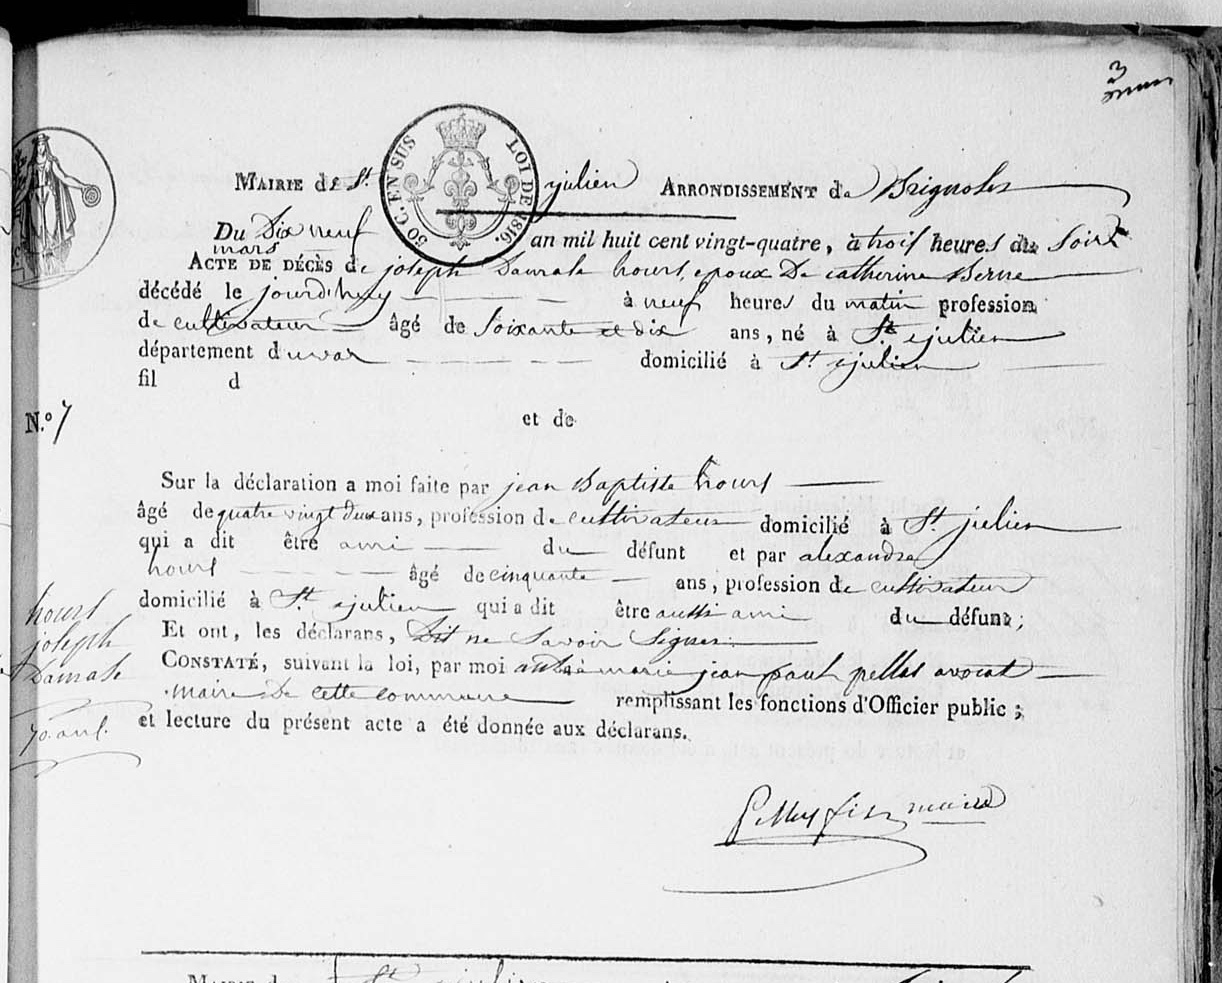 3
50 C. EN SUS LOI DE 1816.
MAIRIE de St. julien ARRONDISSEMENT de Brignoles
Du Dix neuf
mars an mil huit cent vingt-quatre, à trois heures du Soir
ACTE DE DÉCÈS de joseph Damase hours, epoux De catherine Berne
décédé le jourd'huy à neuf heures du matin profession
de cultivateur âgé de Soixante et dix ans, né à St. julien
département du var domicilié à St. julien
fil d
N.º 7
et de
Sur la déclaration a moi faite par jean Baptiste hours
âgé de quatre vingt deux ans, profession de cultivateur domicilié à St. julien
qui a dit être ami du défunt et par alexandre
hours âgé de cinquante ans, profession de cultivateur
domicilié à St. julien qui a dit être aussi ami du défunt;
Et ont, les déclarans, Dit ne Savoir Signer
CONSTATÉ, suivant la loi, par moi andré marie jean paul pellas avocat
maire De cette commune remplissant les fonctions d'Officier public;
et lecture du présent acte a été donnée aux déclarans.
hours
joseph
Damase
70. ans.
maire
MAIRIE d St. julien